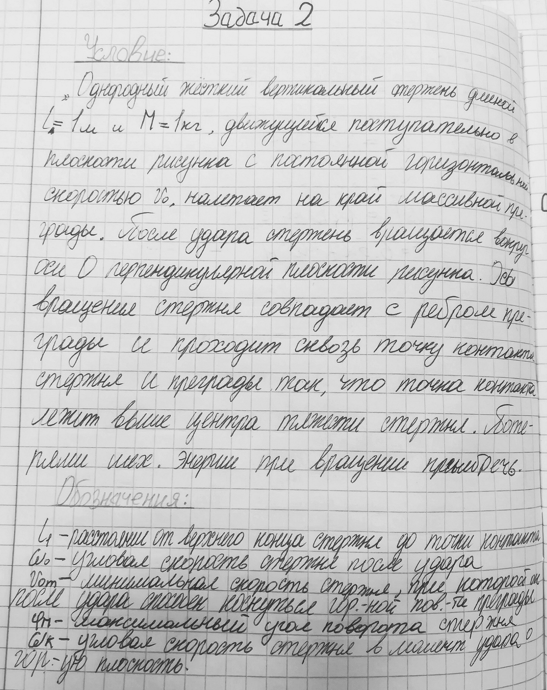 Задача 2
Условие:
Однородный жёсткий вертикальный стержень длиной
L=1м и M=1кг, движущейся поступательно в
плоскости рисунка с постоянной горизонтальной
скоростью v₀, налетает на край массивной пре-
грады. После удара стержень вращается вокруг
оси O перпендикулярной плоскости рисунка. Ось
вращение стержня совпадает с ребром пре-
грады и проходит сквозь точку контакта
стержня и преграды так, что точка контакта
лежит выше центра тяжести стержня. Поте-
рями мех. энергии при вращении пренебречь.
Обозначения:
L₁ - расстояние от верхнего конца стержня до точки контакта
ω₀ - угловая скорость стержня после удара
v₀m - минимальная скорость стержня, при которой он
после удара способен коснуться гор-ной пов-ти преграды
φм - максимальный угол поворота стержня
ωк - угловая скорость стержня в момент удара о
гор-ую плоскость.